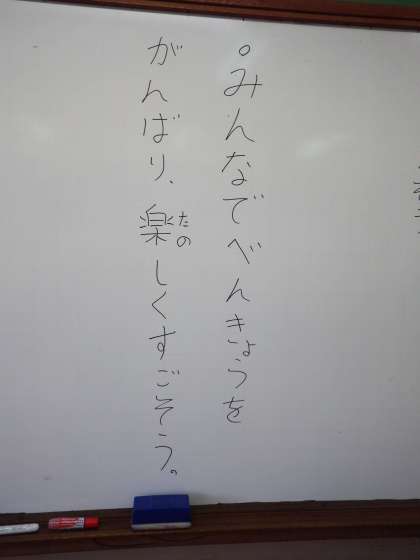 ○みんなでべんきょうを
がんばり、楽しくすごそう。
たの